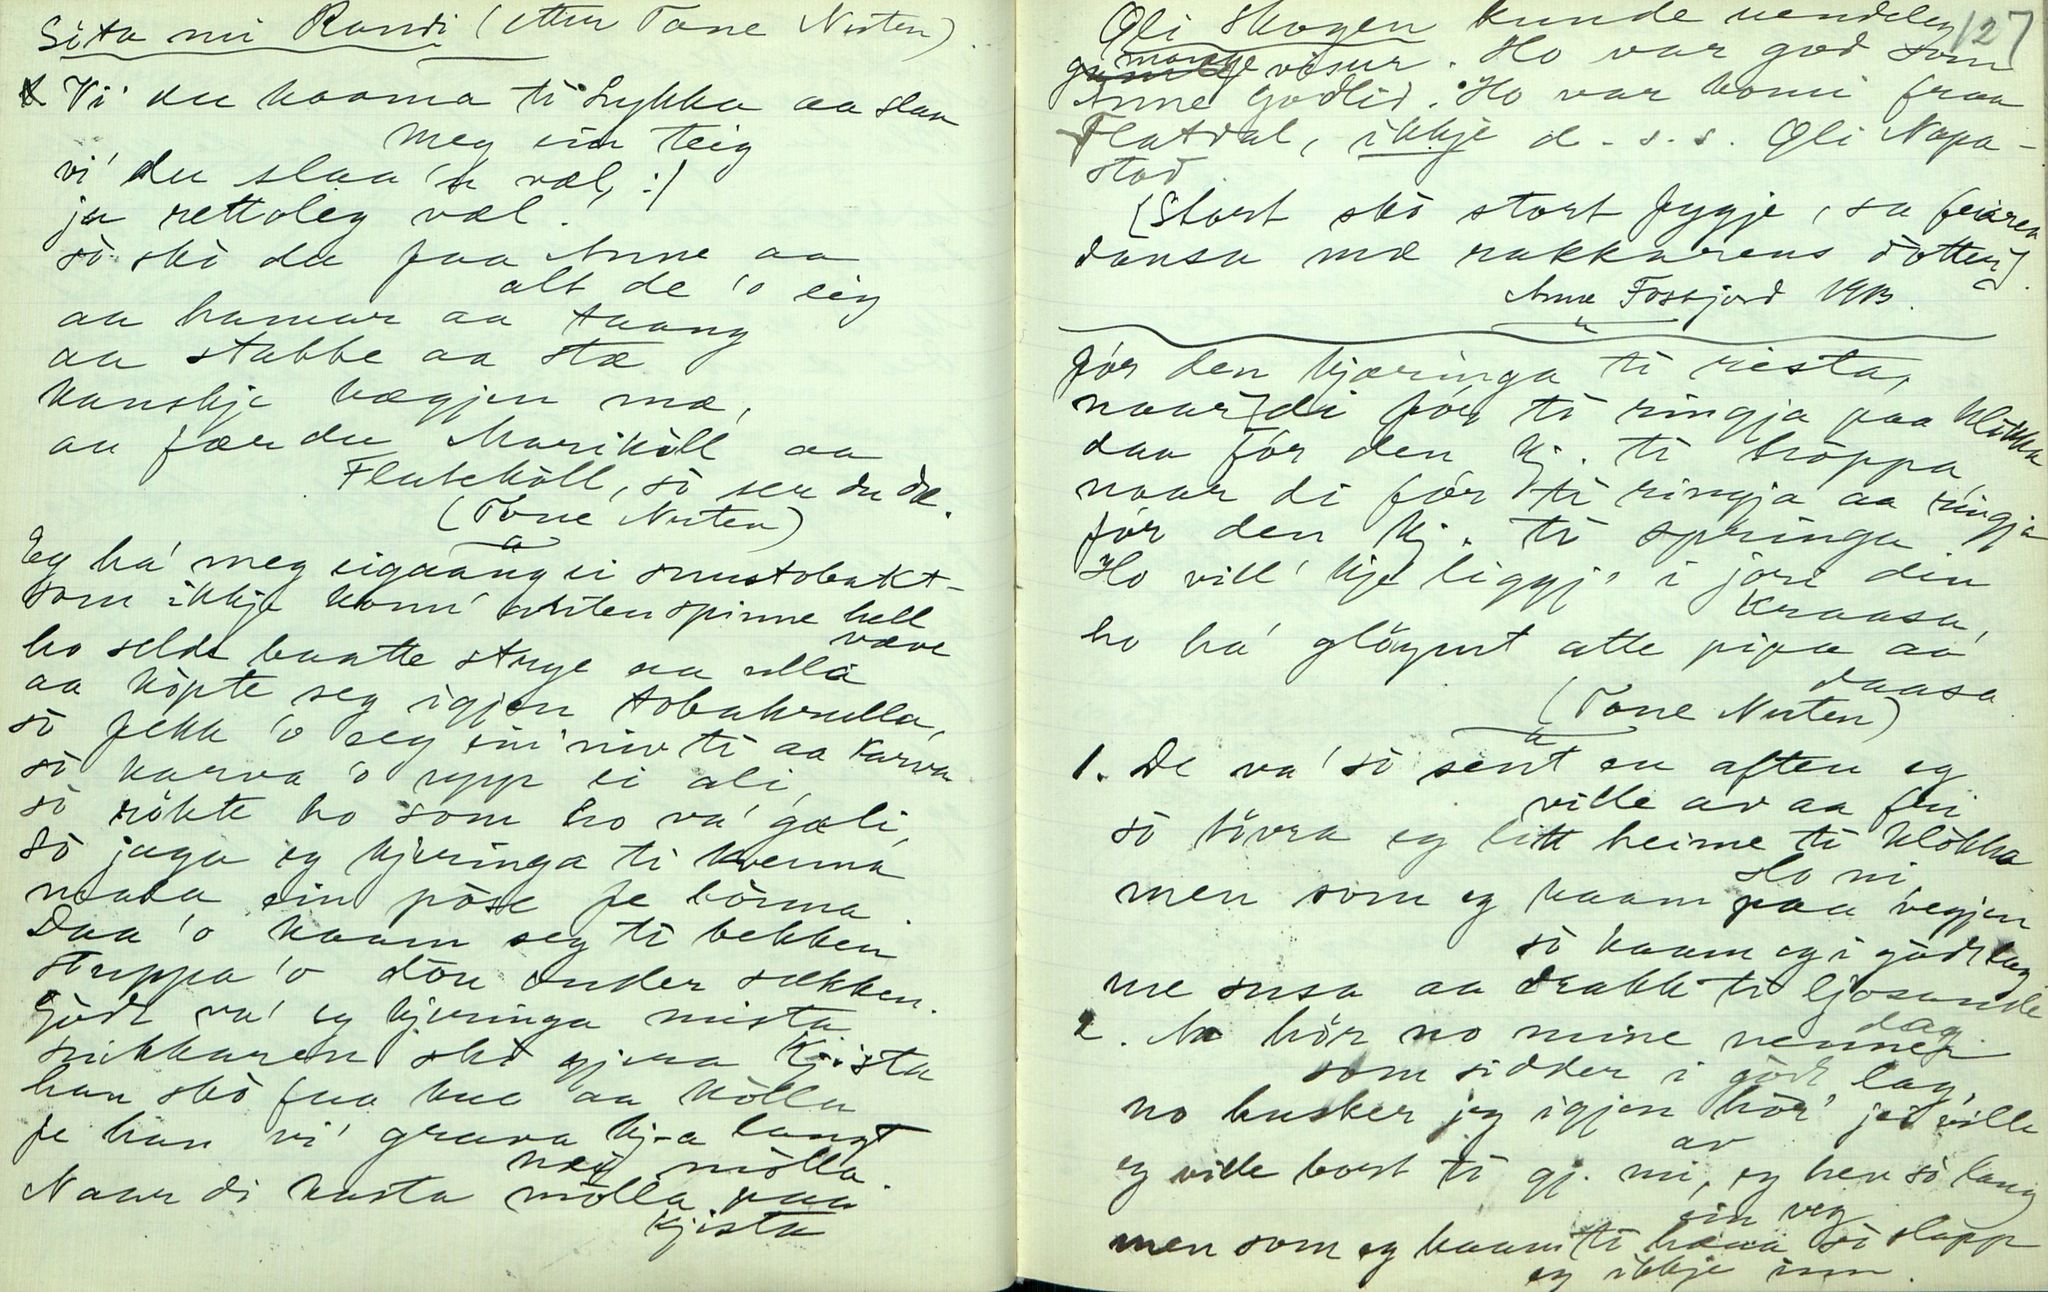 Sita mi Randi (etter Tone Nuten).
Vi' du kaama ti Lykka aa slaa
meg ein teig
vi' du slaa 'n væl, :/
ja rettoleg væl.
sò skò du faa Anne aa
alt de 'o eig
aa hamar aa taang
aa stabbe aa stæ
kanskje bægjen mæ,
aa fær du Marikòll aa
Flatekòll, sò ser du dæ.
(Tone Nuten)
Eg há' meg eigaang ei snustobakt-
som ikkje kunn' anten spinne hell
væve
ho selde baatte stuge aa ulla
aa köpte seg igjen tobakrulla,
sò fekk 'o seg ein niv ti aa karva
sò karva 'o upp ei ali,
sò rökte ho som ho va' gæli,
sò jaga eg kjeringa ti kvenna
mala ein pòse fe bònna.
Daa 'o kaam seg ti bekken
stuppa 'o dòu under sekken.
Godt va' eg kjeringa mista
snikkaren skò gjera kjista
han skò faa kue aa kòlla
fe han vi' grava kj-a langt
næi mòlla.
Naar di kasta mòlla paa
kjista
127
Oli Skogen kunde uendeleg
mange visur. Ho var god som
Anne Godlid. Ho var komi fraa
Flatdal, ikkje d. s. s. Oli Napa-
stod
(Stort skò stort fygje, sa feiaren
dansa mæ rakkarens dotter).
Anne Fosfjord 1913.
fór den kjæringa ti rista,
naar di fór ti ringja paa klòkka
daa fór den kj. ti hòppa
naar di fór ti ringja aa ringja
fór den kj. ti springa.
Ho vill' kje liggj' i jori den
kraasa,
ho há' glöymt atte pipa aa
daasa
(Tone Nuten)
1. De va' sò seint en aften eg
ville av aa fri
sò tövra eg litt heime ti klòkka
ho ni
men som eg kaam paa vegjen
sò kaam eg i godt lag
me susa aa drakk ti ljosande
dag.
2. Aa hör no mine venner
som sidder i godt lag,
no husker jeg igjen hòr' jeg ville
av
eg ville bort ti gj. mi, eg hev sò lang
ein veg
men som eg kaam ti hæna sò slapp
eg ikkje inn.